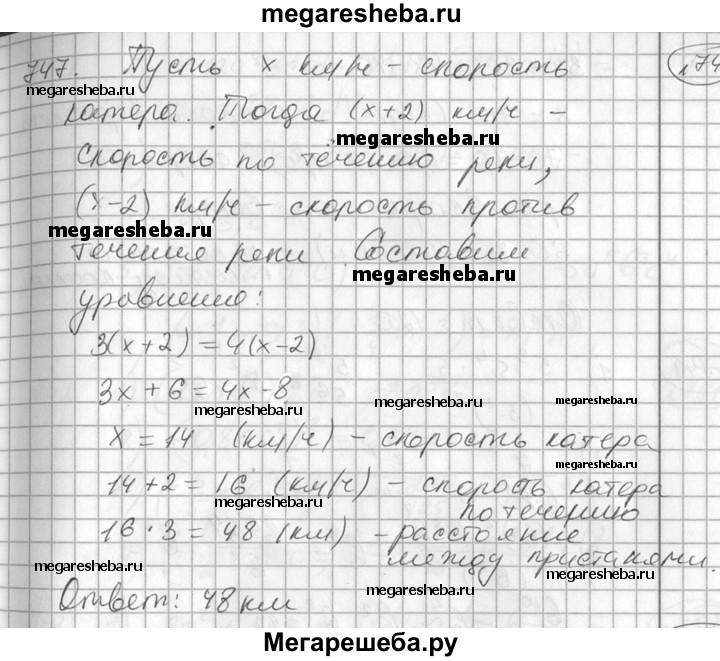 megaresheba.ru
747. Пусть x км/ч – скорость
megaresheba.ru
катера. Тогда (x+2) км/ч –
megaresheba.ru
скорость по течению реки,
(x-2) км/ч – скорость против
megaresheba.ru
течения реки Составим
megaresheba.ru
уравнение:
3(x+2) = 4(x-2)
3x + 6 = 4x - 8
megaresheba.ru megaresheba.ru megaresheba.ru
x = 14 (км/ч) – скорость катера
megaresheba.ru
14 + 2 = 16 (км/ч) – скорость катера
megaresheba.ru
по течению
16 · 3 = 48 (км) – расстояние
между пристанями.
megaresheba.ru megaresheba.ru
Ответ: 48 км
megaresheba.ru
Мегарешеба.ру